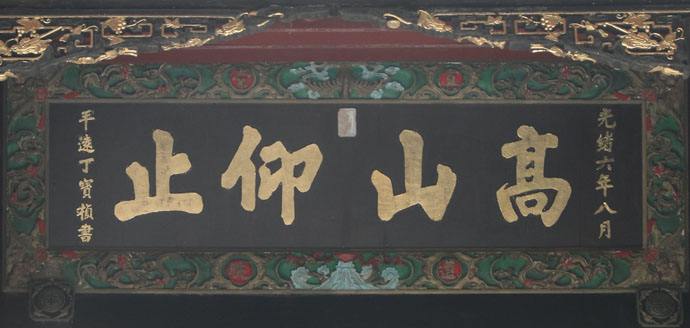 光緒六年八月
高山仰止
平遠丁寶楨書